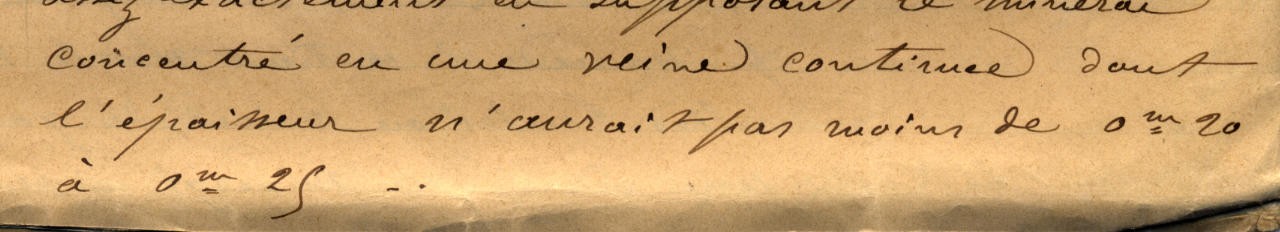 assez exactement en supposant le minerai
concentré en une veine continue dont
l'épaisseur n'aurait pas moins de 0m 20
à 0m 25 -.